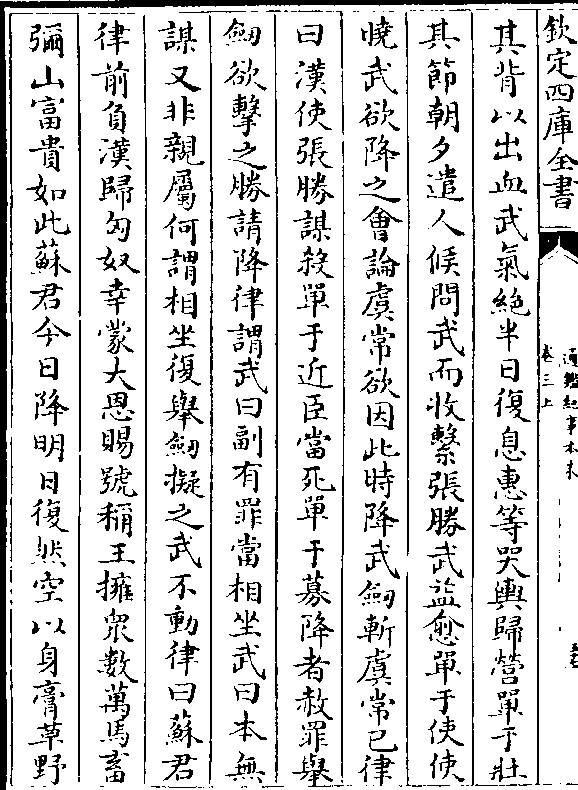 欽定四庫全書
通鑑紀事本末
卷三上
其背以出血武氣絶半日復息惠等哭輿歸營單于壯
其節朝夕遣人候問武而收繫張勝武益愈單于使使
曉武欲降之會論虞常欲因此時降武劔斬虞常已律
曰漢使張勝謀殺單于近臣當死單于募降者赦罪舉
劔欲擊之勝請降律謂武曰副有罪當相坐武曰本無
謀又非親屬何謂相坐復舉劔擬之武不動律曰蘇君
律前負漢歸匈奴幸蒙大恩賜號稱王擁衆數萬馬畜
彌山富貴如此蘇君今日降明日復然空以身膏草野